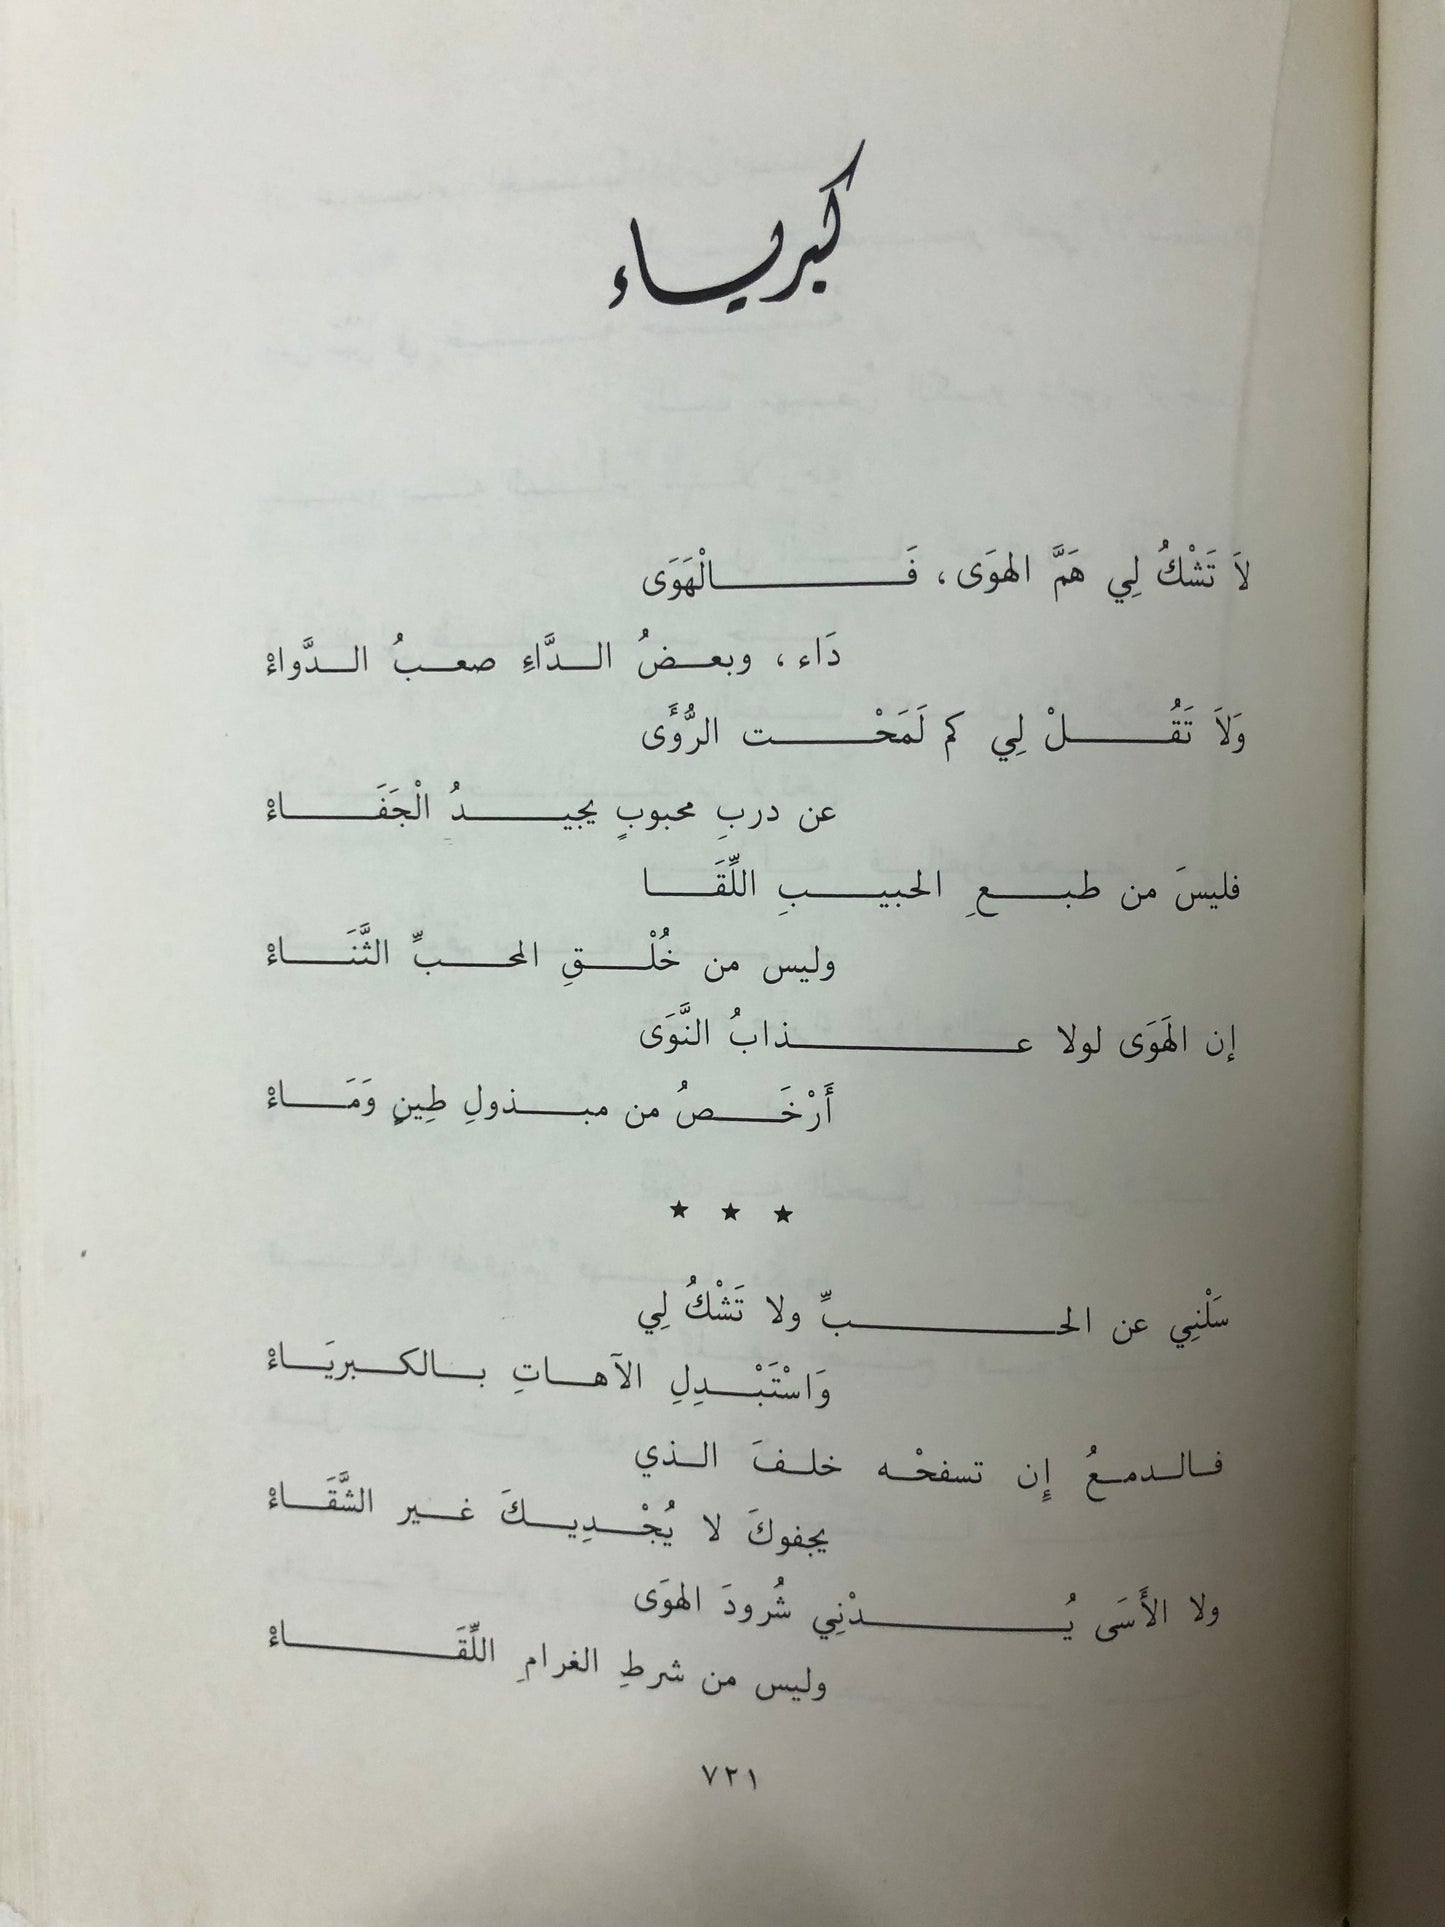 كبرياء
لاَ تَشْكُ لِي هَمَّ الهوَى ، فَالْهَوَى
دَاء ، وبعضُ الدَّاءِ صعبُ الدَّواءْ
وَلاَ تَقُلْ لِي كم لَمَحْت الرُّؤَى
عن دربِ محبوبٍ يجيدُ الْجَفَاءْ
فليسَ من طبعِ الحبيبِ اللِّقَا
وليس من خُلْقِ المحبِّ الثَّنَاءْ
إن الهَوَى لولا عذابُ النَّوَى
أَرْخَصُ من مبذولِ طِينٍ وَمَاءْ
★ ★ ★
سَلْنِي عن الحبِّ ولا تَشْكُ لِي
وَاسْتَبْدِلِ الآهاتِ بالكبريَاءْ
فالدمعُ إن تسفحْه خلفَ الذي
يجفوكَ لا يُجْدِيكَ غير الشَّقَاءْ
ولا الأَسَى يُدْنِي شُرودَ الهوَى
وليس من شرطِ الغرامِ اللِّقَاءْ
٧٢١